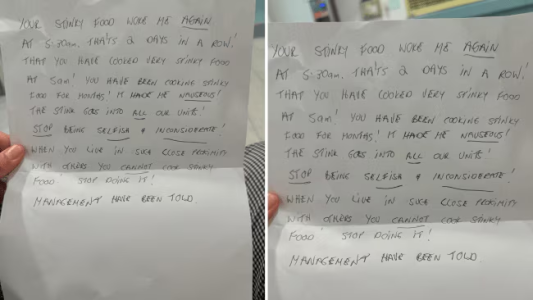 YOUR STINKY FOOD WOKE ME AGAIN
AT 5:30am. THAT'S 2 DAYS IN A ROW!
THAT YOU HAVE COOKED VERY STINKY FOOD
AT 5am! YOU HAVE BEEN COOKING STINKY
FOOD FOR MONTHS! IT MAKE ME NAUSEOUS!
THE STINK GOES INTO ALL OUR UNITS!
STOP BEING SELFISH & INCONSIDERATE!
WHEN YOU LIVE IN SUCH CLOSE PROXIMITY
WITH OTHERS YOU CANNOT COOK STINKY
FOOD! STOP DOING IT!
MANAGEMENT HAVE BEEN TOLD.
YOUR STINKY FOOD WOKE ME AGAIN
AT 5:30am. THAT'S 2 DAYS IN A ROW!
THAT YOU HAVE COOKED VERY STINKY FOOD
AT 5am! YOU HAVE BEEN COOKING STINKY
FOOD FOR MONTHS! IT MAKE ME NAUSEOUS!
THE STINK GOES INTO ALL OUR UNITS!
STOP BEING SELFISH & INCONSIDERATE!
WHEN YOU LIVE IN SUCH CLOSE PROXIMITY
WITH OTHERS YOU CANNOT COOK STINKY
FOOD! STOP DOING IT!
MANAGEMENT HAVE BEEN TOLD